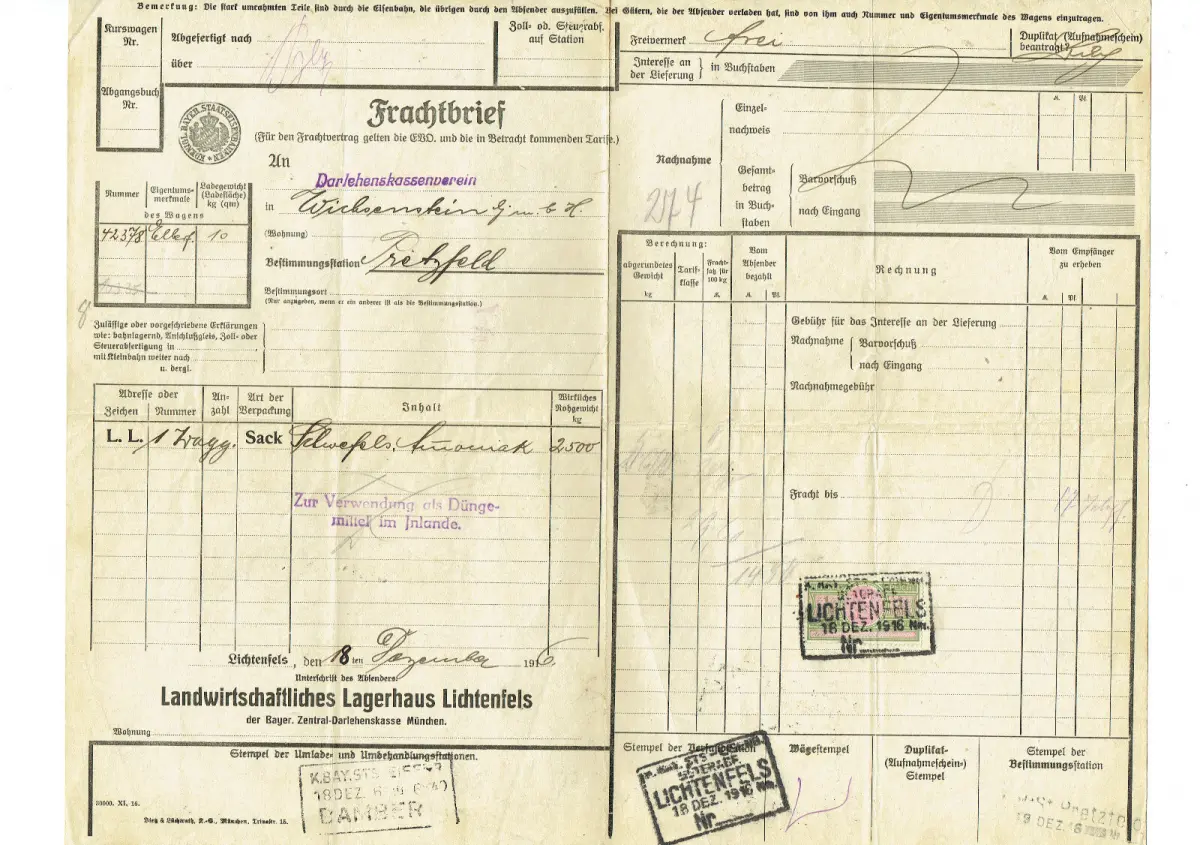 Bemerkung: Die stark umrahmten Teile sind durch die Eisenbahn, die übrigen durch den Absender auszufüllen. Bei Gütern, die der Absender verladen hat, sind von ihm auch Nummer und Eigentumsmerkmale des Wagens einzutragen.
Kurswagen
Nr.
Abgefertigt nach
über
Zoll- od. Steuerabf.
auf Station
Abgangsbuch
Nr.
KOENIGL. BAYER. STAATSEISENBAHNEN
Frachtbrief
(Für den Frachtvertrag gelten die EVO. und die in Betracht kommenden Tarife.)
An
Darlehenskassenverein
in Wichsenstein G. m. b. H.
(Wohnung)
Bestimmungsstation Pretzfeld
Bestimmungsort
(Nur anzugeben, wenn er ein anderer ist als die Bestimmungsstation.)
Nummer
Eigentums-
merkmale
Ladegewicht
(Ladefläche)
kg (qm)
des Wagens
42378 10
8
Zulässige oder vorgeschriebene Erklärungen
wie: bahnlagernd, Anschlußgleis, Zoll- oder
Steuerabfertigung in
mit Kleinbahn weiter nach
u. dergl.
Adresse oder
Zeichen Nummer
An-
zahl
Art der
Verpackung
Inhalt
Wirkliches
Rohgewicht
kg
L. L. 1 Wagg. Sack Schwefels. Ammoniak 2500
Zur Verwendung als Dünge-
mittel im Inlande.
Lichtenfels, den 18ten Dezember 1916
Unterschrift des Absenders:
Landwirtschaftliches Lagerhaus Lichtenfels
der Bayer. Zentral-Darlehenskasse München.
Wohnung
Stempel der Umlade- und Umbehandlungsstationen.
K.BAY.STS
18 DEZ. 6
BAMBER
30000. XI. 16.
München,
Freivermerk frei
Duplikat (Aufnahmeschein)
beantragt?
Interesse an
der Lieferung
in Buchstaben
Nachnahme
Einzel-
nachweis
M. Pf.
Gesamt-
betrag
in Buch-
staben
Barvorschuß
nach Eingang
274
Berechnung:
abgerundetes
Gewicht
kg
Tarif-
klasse
Fracht-
satz für
100 kg
M.
Vom
Absender
bezahlt
M. Pf.
Rechnung
Vom Empfänger
zu erheben
M. Pf.
Gebühr für das Interesse an der Lieferung
Nachnahme
Barvorschuß
nach Eingang
Nachnahmegebühr
Fracht bis
LICHTENFELS
18 DEZ. 1916 Nm.
Nr.
Stempel der Versandstation
LICHTENFELS
18 DEZ. 1916 Nm.
Nr.
Wägestempel
Duplikat-
(Aufnahmeschein-)
Stempel
Stempel der
Bestimmungsstation
19 DEZ. 16